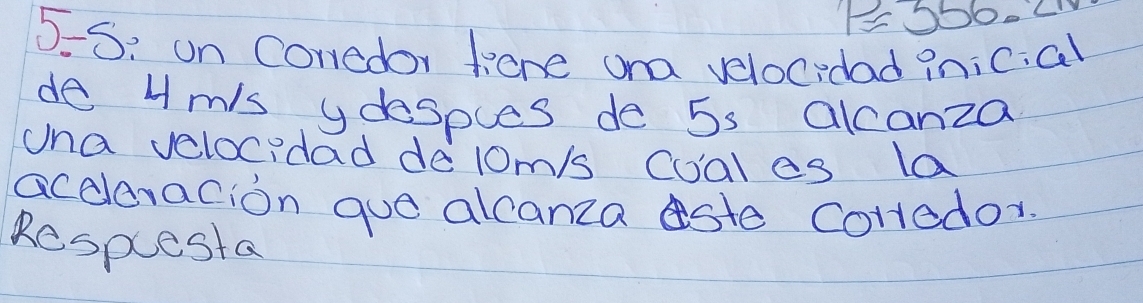 P=356.2N
5.- Si un corredor tiene una velocidad inicial
de 4 m/s y despues de 5s alcanza
una velocidad de 10m/s cual es la
aceleración que alcanza este corredor.
Respuesta